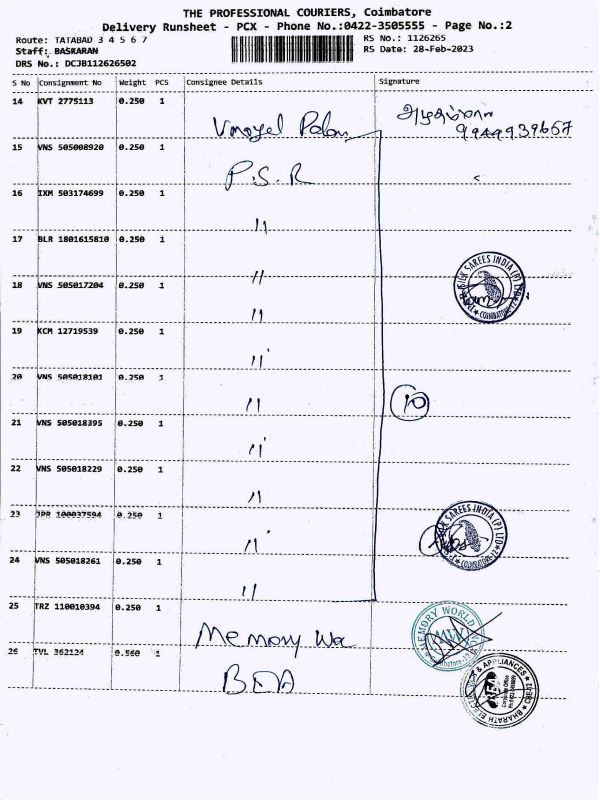 THE PROFESSIONAL COURIERS, Coimbatore
Delivery Runsheet - PCX - Phone No.:0422-3505555 - Page No.:2
Route: TATABAD 3 4 5 6 7 RS No.: 1126265
Staff: BASKARAN RS Date: 28-Feb-2023
DRS No.: DCJB112626502
S No Consignment No Weight PCS Consignee Details Signature
14 KVT 2775113 0.250 1
9944939657
15 VNS 505008920 0.250 1 P.S.R
16 IXM 503174699 0.250 1 〃
17 BLR 1801615810 0.250 1 〃
18 VNS 505017204 0.250 1 〃
SILK SAREES INDIA (P) LTD
COIMBATORE-12
19 KCM 12719539 0.250 1 〃
20 VNS 505018101 0.250 1 〃 10
21 VNS 505018395 0.250 1 〃
22 VNS 505018229 0.250 1 〃
23 JPR 100037594 0.250 1 〃
SILK SAREES INDIA (P) LTD
COIMBATORE-12
24 VNS 505018261 0.250 1 〃
25 TRZ 110010394 0.250 1 Memory Wo
MEMORY WORLD
MW
Coimbatore-12
26 TVL 362124 0.560 1 BEA
& APPLIANCES
BHARATH ELECT